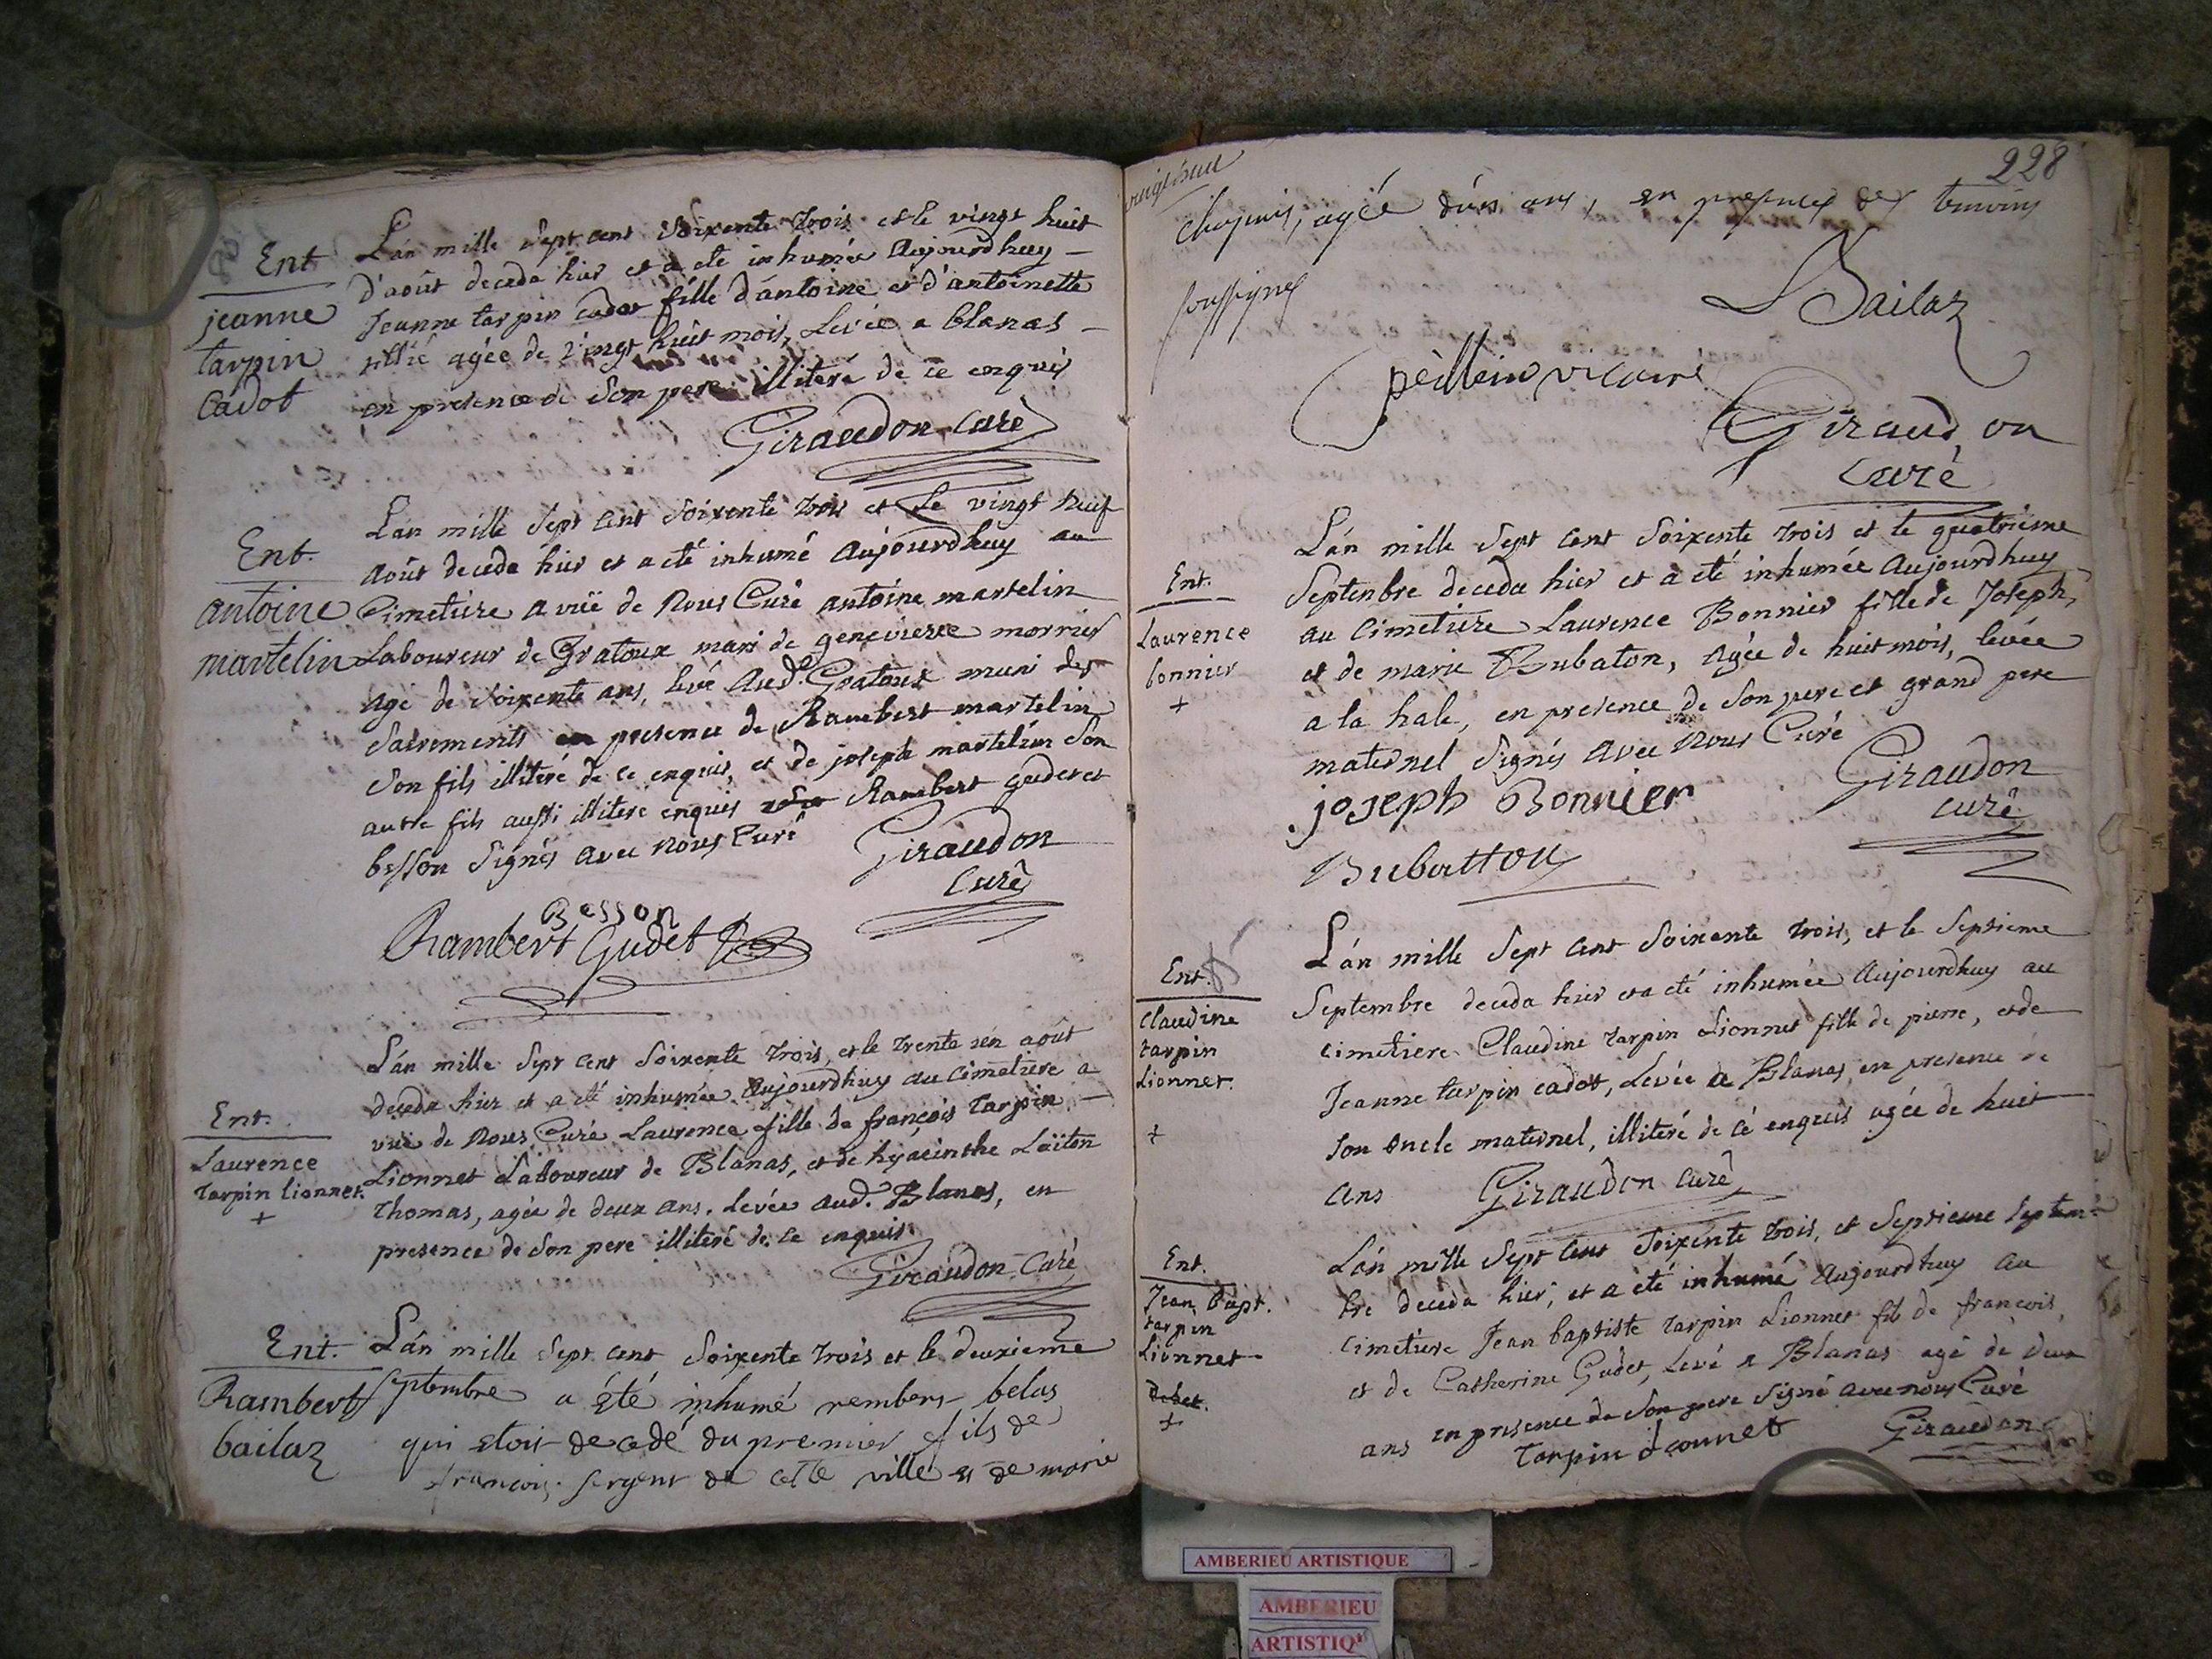 Ent
jeanne
tarpin
Cadot
L'an mille sept cent Soixente trois et le vingt huit
d'août deceda hier et a eté inhumée Aujourdhuy —
Jeanne tarpin cadot fille d'antoine et d'antoinette
agée de vingt huit mois, Levée a blanas —
en presence de Son pere illiteré de ce enquis
Giraudon Curé
Ent.
antoine
martelin
L'an mille Sept cent Soixente trois et Le vingt neuf
Août deceda hier et a eté inhumé Aujourdhuy au
Cimetiere a vüe de Nous Curé antoine martelin
Laboureur de Gratoux mari de genevieve morrier
agé de Soixente ans, levé Aud. Gratoux muni des
Sacrements en presence de Rambert martelin
Son fils illiteré de ce enquis, et de joseph martelin Son
autre fils aussi illiteré enquis Rambert gudet et
besson Signés avec Nous Curé
Giraudon
Curé
Besson
Rambert Gudet
Ent.
Laurence
tarpin lionnet.
+
L'an mille Sept cent Soixente trois, et le trente un août
deceda hier et a eté inhumée Aujourdhuy au Cimetiere a
vüe de Nous Curé Laurence fille de françois tarpin —
Lionnet Laboureur de Blanas, et de hyacinthe Laïton
Thomas, agée de deux ans. Levée aud. Blanas, en
presence de Son pere illiteré de ce enquis
Giraudon Curé
Ent.
Rambert
bailaz
L'an mille Sept cent Soixente trois et le deuxieme
septembre a été inhumé rembert belas
qui etoit decedé du premier fils de
francois sergent de cette ville et de marie
228
agé d'un ans, en presence des temoins
soussignes
Bailaz
peillein vicaire
Giraudon
Curé
Ent.
Laurence
bonnier
+
L'an mille Sept cent Soixente trois et le quatrieme
Septenbre deceda hier et a eté inhumée Aujourdhuy
au Cimetiere Laurence Bonnier fille de Joseph,
et de marie Bubaton, Agée de huit mois, levée
a la hale, en presence de Son pere et grand pere
maternel Signés avec Nous Curé
Giraudon
curé
joseph Bonnier
Bubatton
Ent.
Claudine
tarpin
Lionnet.
+
L'an mille Sept cent Soixente trois, et le Septieme
Septembre deceda hier et a eté inhumée Aujourdhuy au
cimetiere Claudine tarpin Lionnet fille de pierre, et de
Jeanne tarpin cadot, Levée a Blanas en presence de
Son oncle maternel, illiteré de cé enquis agée de huit
ans Giraudon Curé
Ent.
Jean bapt.
tarpin
Lionnet
+
L'an mille Sept cent Soixente trois, et Septieme Septem-
bre deceda hier, et a eté inhumé Aujourdhuy au
cimetiere Jean baptiste tarpin Lionnet fils de francois
et de Catherine Gudet, Levé a Blanas agé de deux
ans en presence de Son pere Signé avec nous Curé
Tarpin Lionnet
Giraudon
AMBERIEU ARTISTIQUE
AMBERIEU
ARTISTIQ